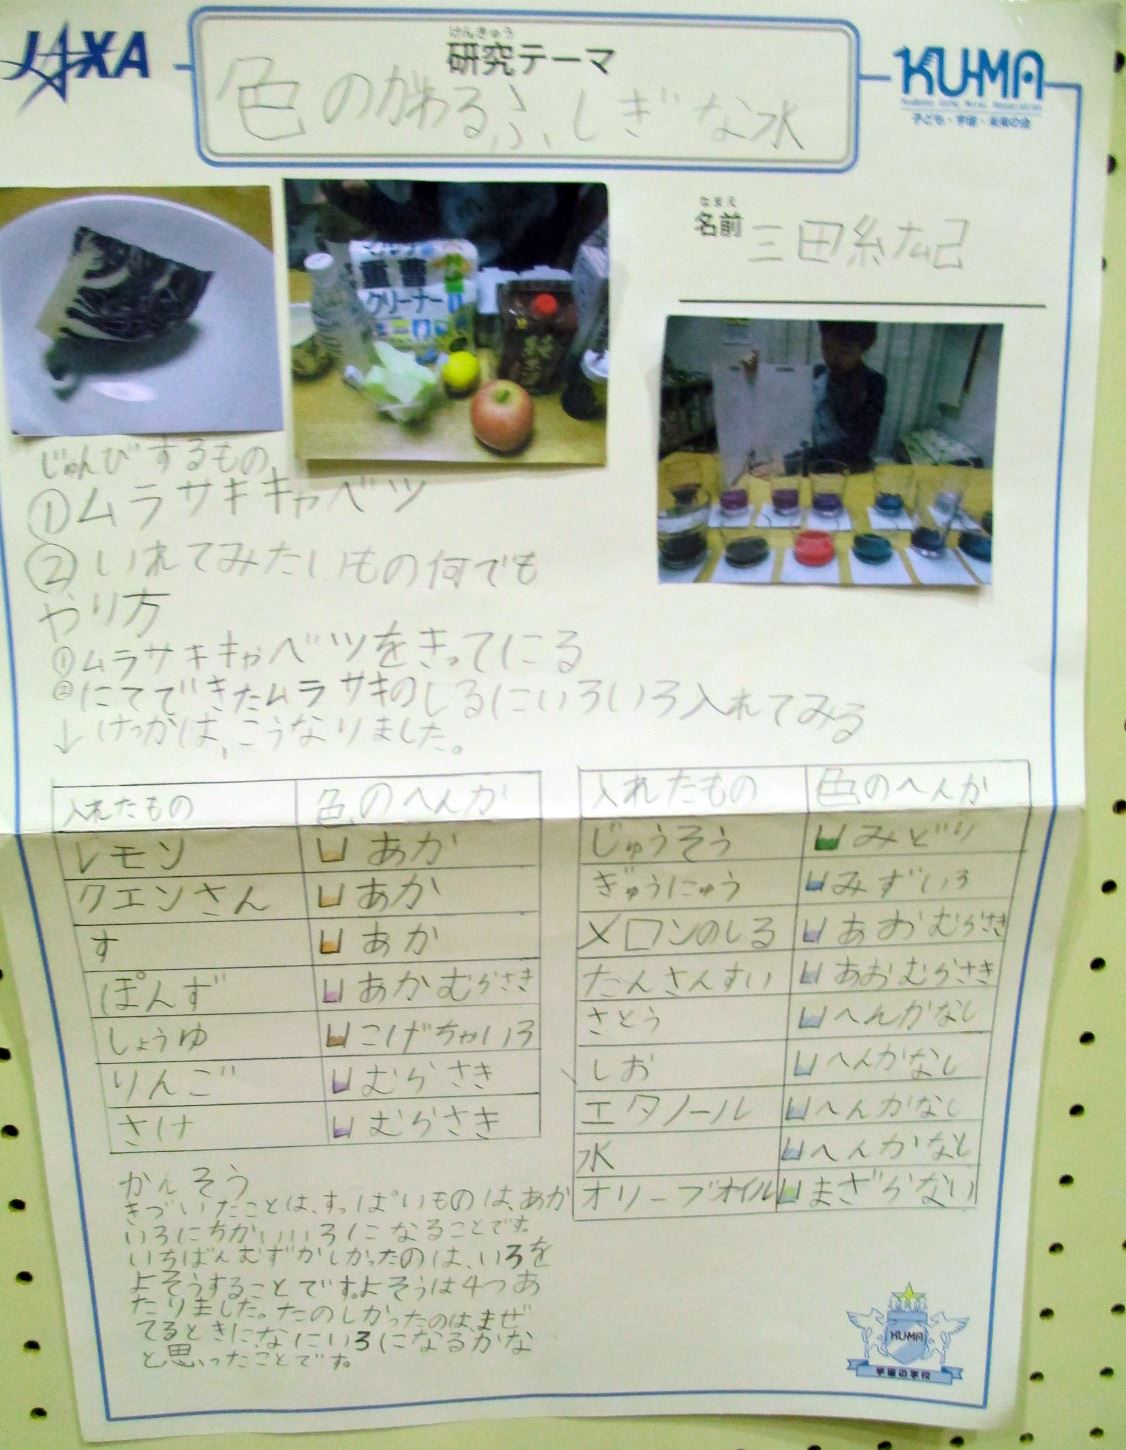 JAXA
けんきゅう
研究テーマ
色のかわるふしぎな水
KU-MA
子ども・宇宙・未来の会
なまえ
名前 三田紘己
クリーナー
じゅんびするもの
①ムラサキキャベツ
②いれてみたいもの何でも
やり方
①ムラサキキャベツをきってにる
②にてできたムラサキのしるにいろいろ入れてみる
↓けっかは、こうなりました。
入れたもの 色のへんか
レモン あか
クエンさん あか
す あか
ぽんず あかむらさき
しょうゆ こげちゃいろ
りんご むらさき
さけ むらさき
入れたもの 色のへんか
じゅうそう みどり
ぎゅうにゅう みずいろ
メロンのしる あおむらさき
たんさんすい あおむらさき
さとう へんかなし
しお へんかなし
エタノール へんかなし
水 へんかなし
オリーブオイル まざらない
かんそう
きづいたことは、すっぱいものは、あか
いろにちかいいろになることです。
いちばんむずかしかったのは、いろを
よそうすることです。よそうは4つあ
たりました。たのしかったのはまぜ
てるときになにいろになるかな
と思ったことです。
KU-MA
宇宙の学校